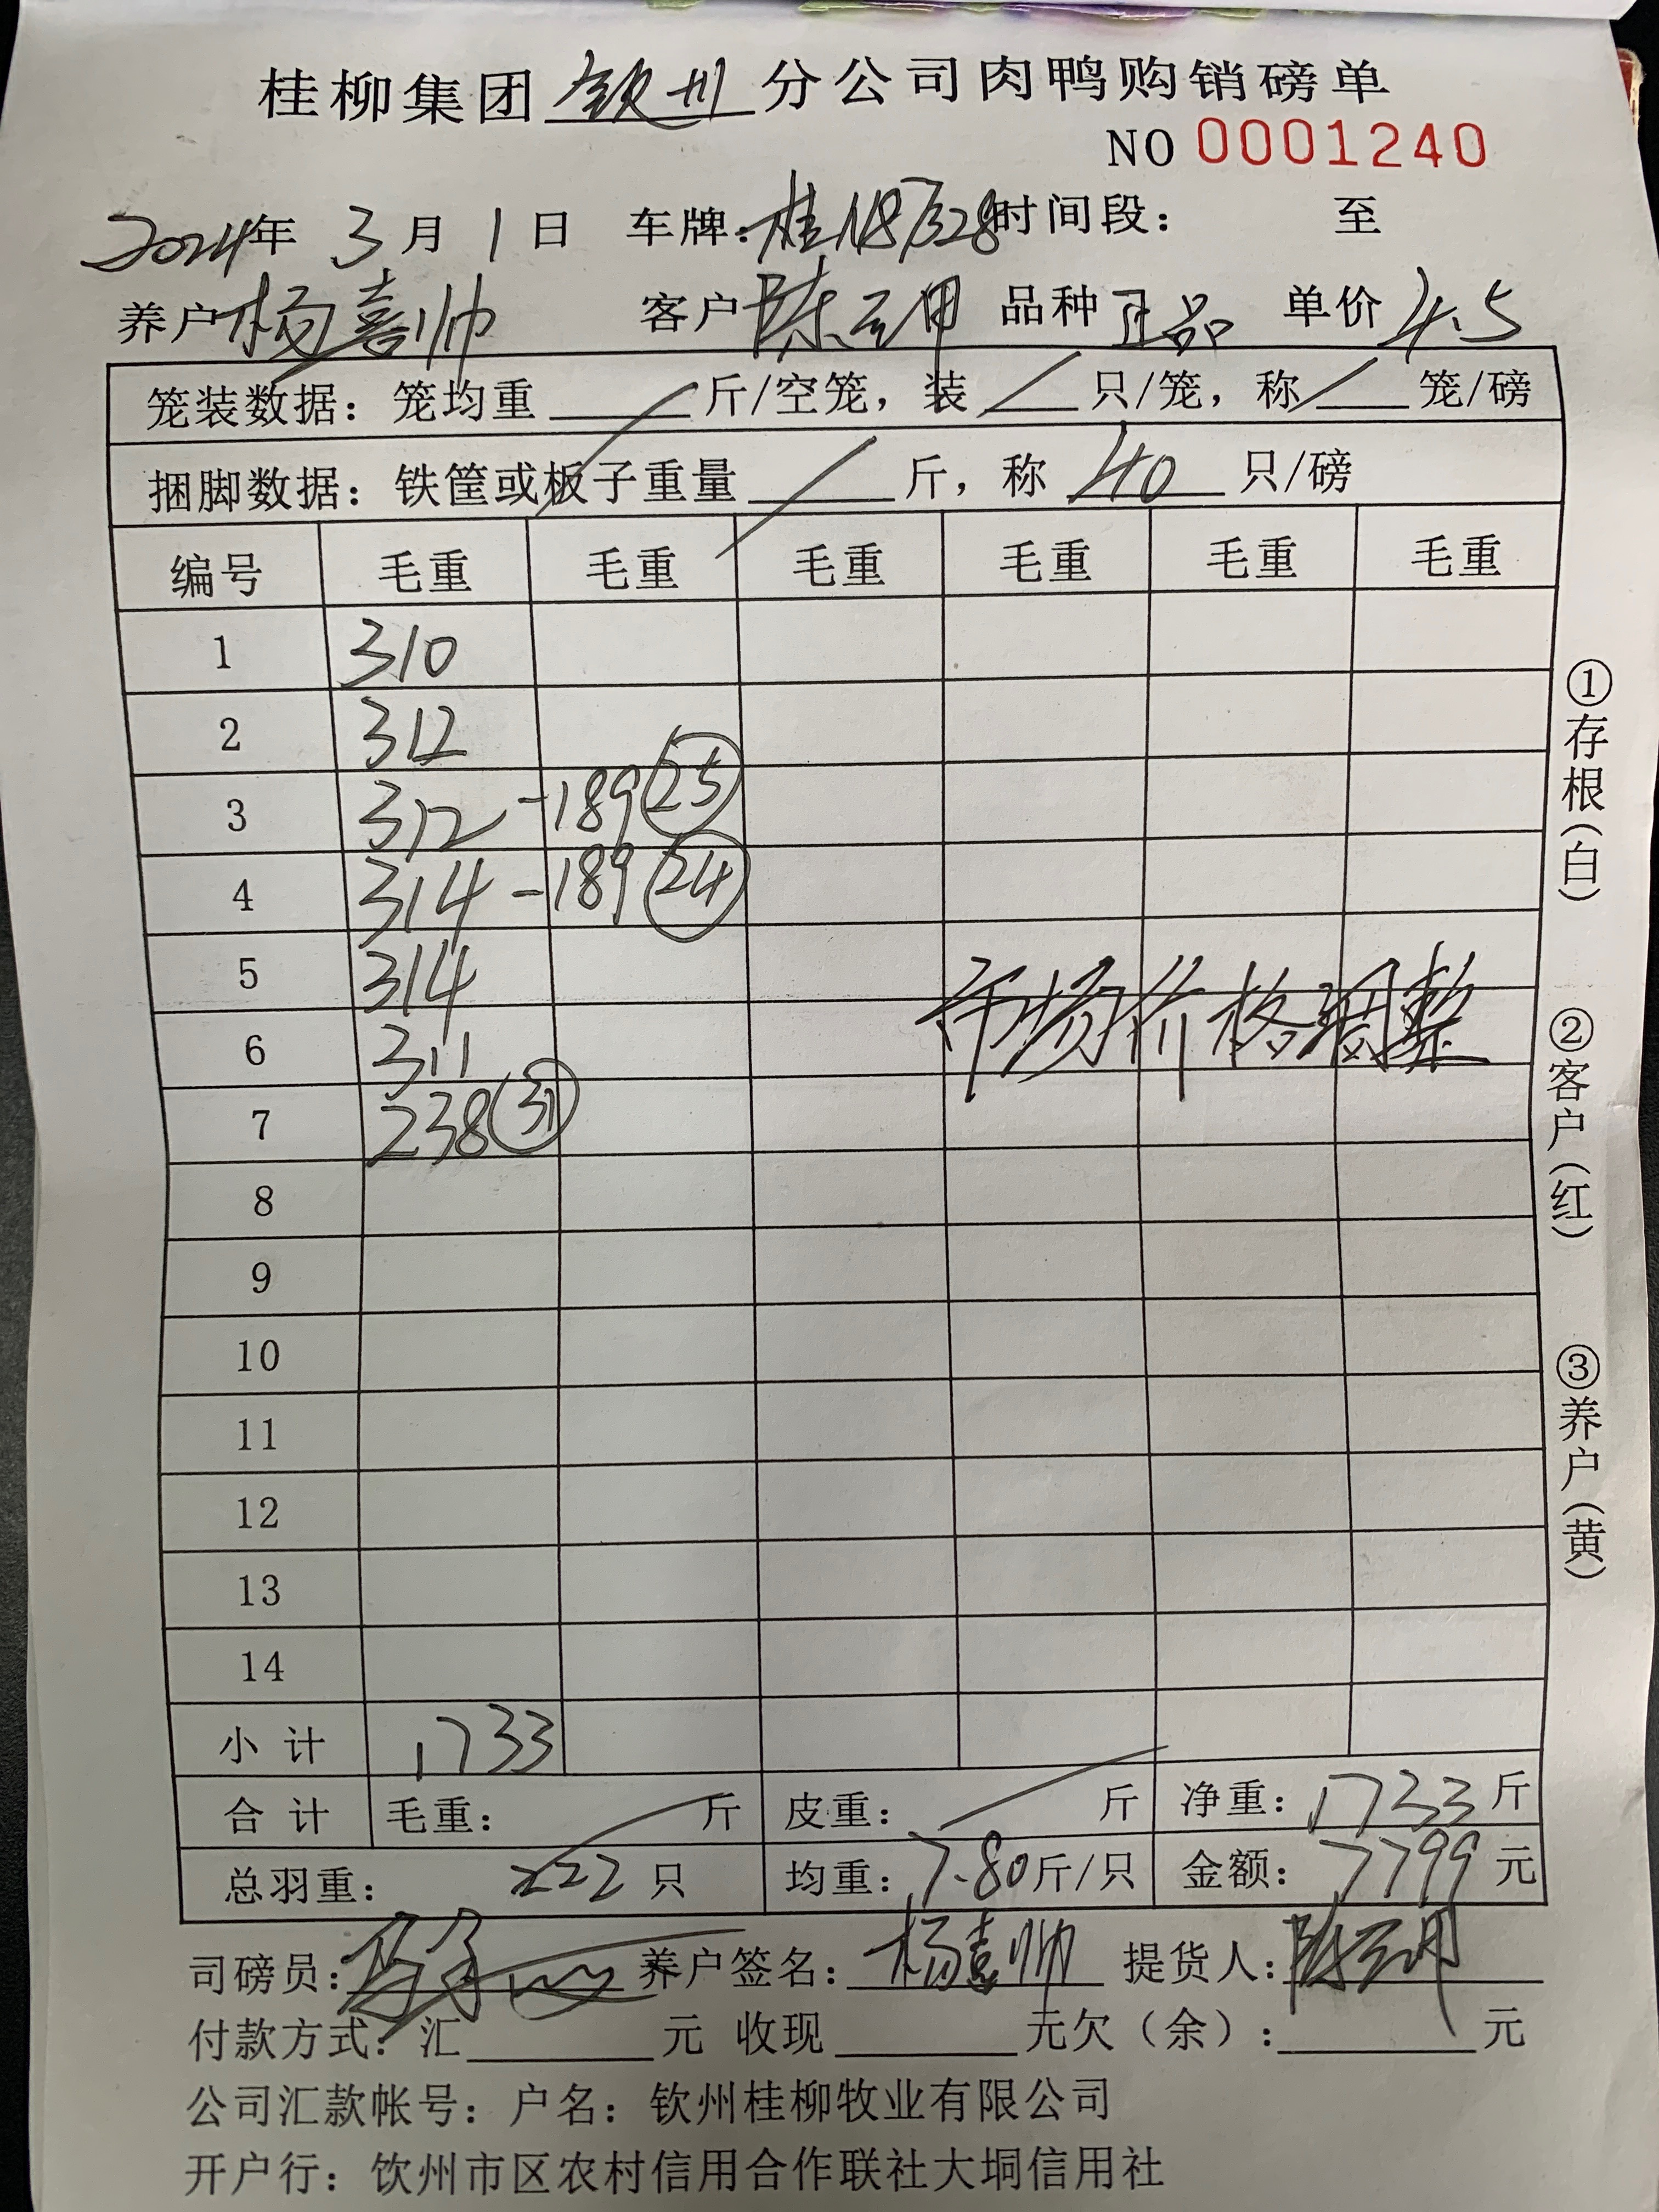 桂柳集团钦州分公司肉鸭购销磅单
NO 0001240
2024年 3月 1日 车牌:桂N87328时间段: 至
养户杨喜帅 客户陈云用 品种正品 单价4.5
笼装数据:笼均重 斤/空笼,装 只/笼,称 笼/磅
捆脚数据:铁筐或板子重量 斤,称 40 只/磅
编号 毛重 毛重 毛重 毛重 毛重 毛重
1 310
2 312
3 312 -189 25
4 314 -189 24
5 314
6 311
市场价格调整
7 238 31
8
9
10
11
12
13
14
小计 1733
合计 毛重: 斤 皮重: 斤 净重:1733斤
总羽重: 222只 均重:7.80斤/只 金额:7799元
司磅员: 养户签名:杨喜帅 提货人:陈云用
付款方式:汇 元 收现 元欠(余): 元
公司汇款帐号:户名:钦州桂柳牧业有限公司
开户行:钦州市区农村信用合作联社大垌信用社
①存根(白)
②客户(红)
③养户(黄)